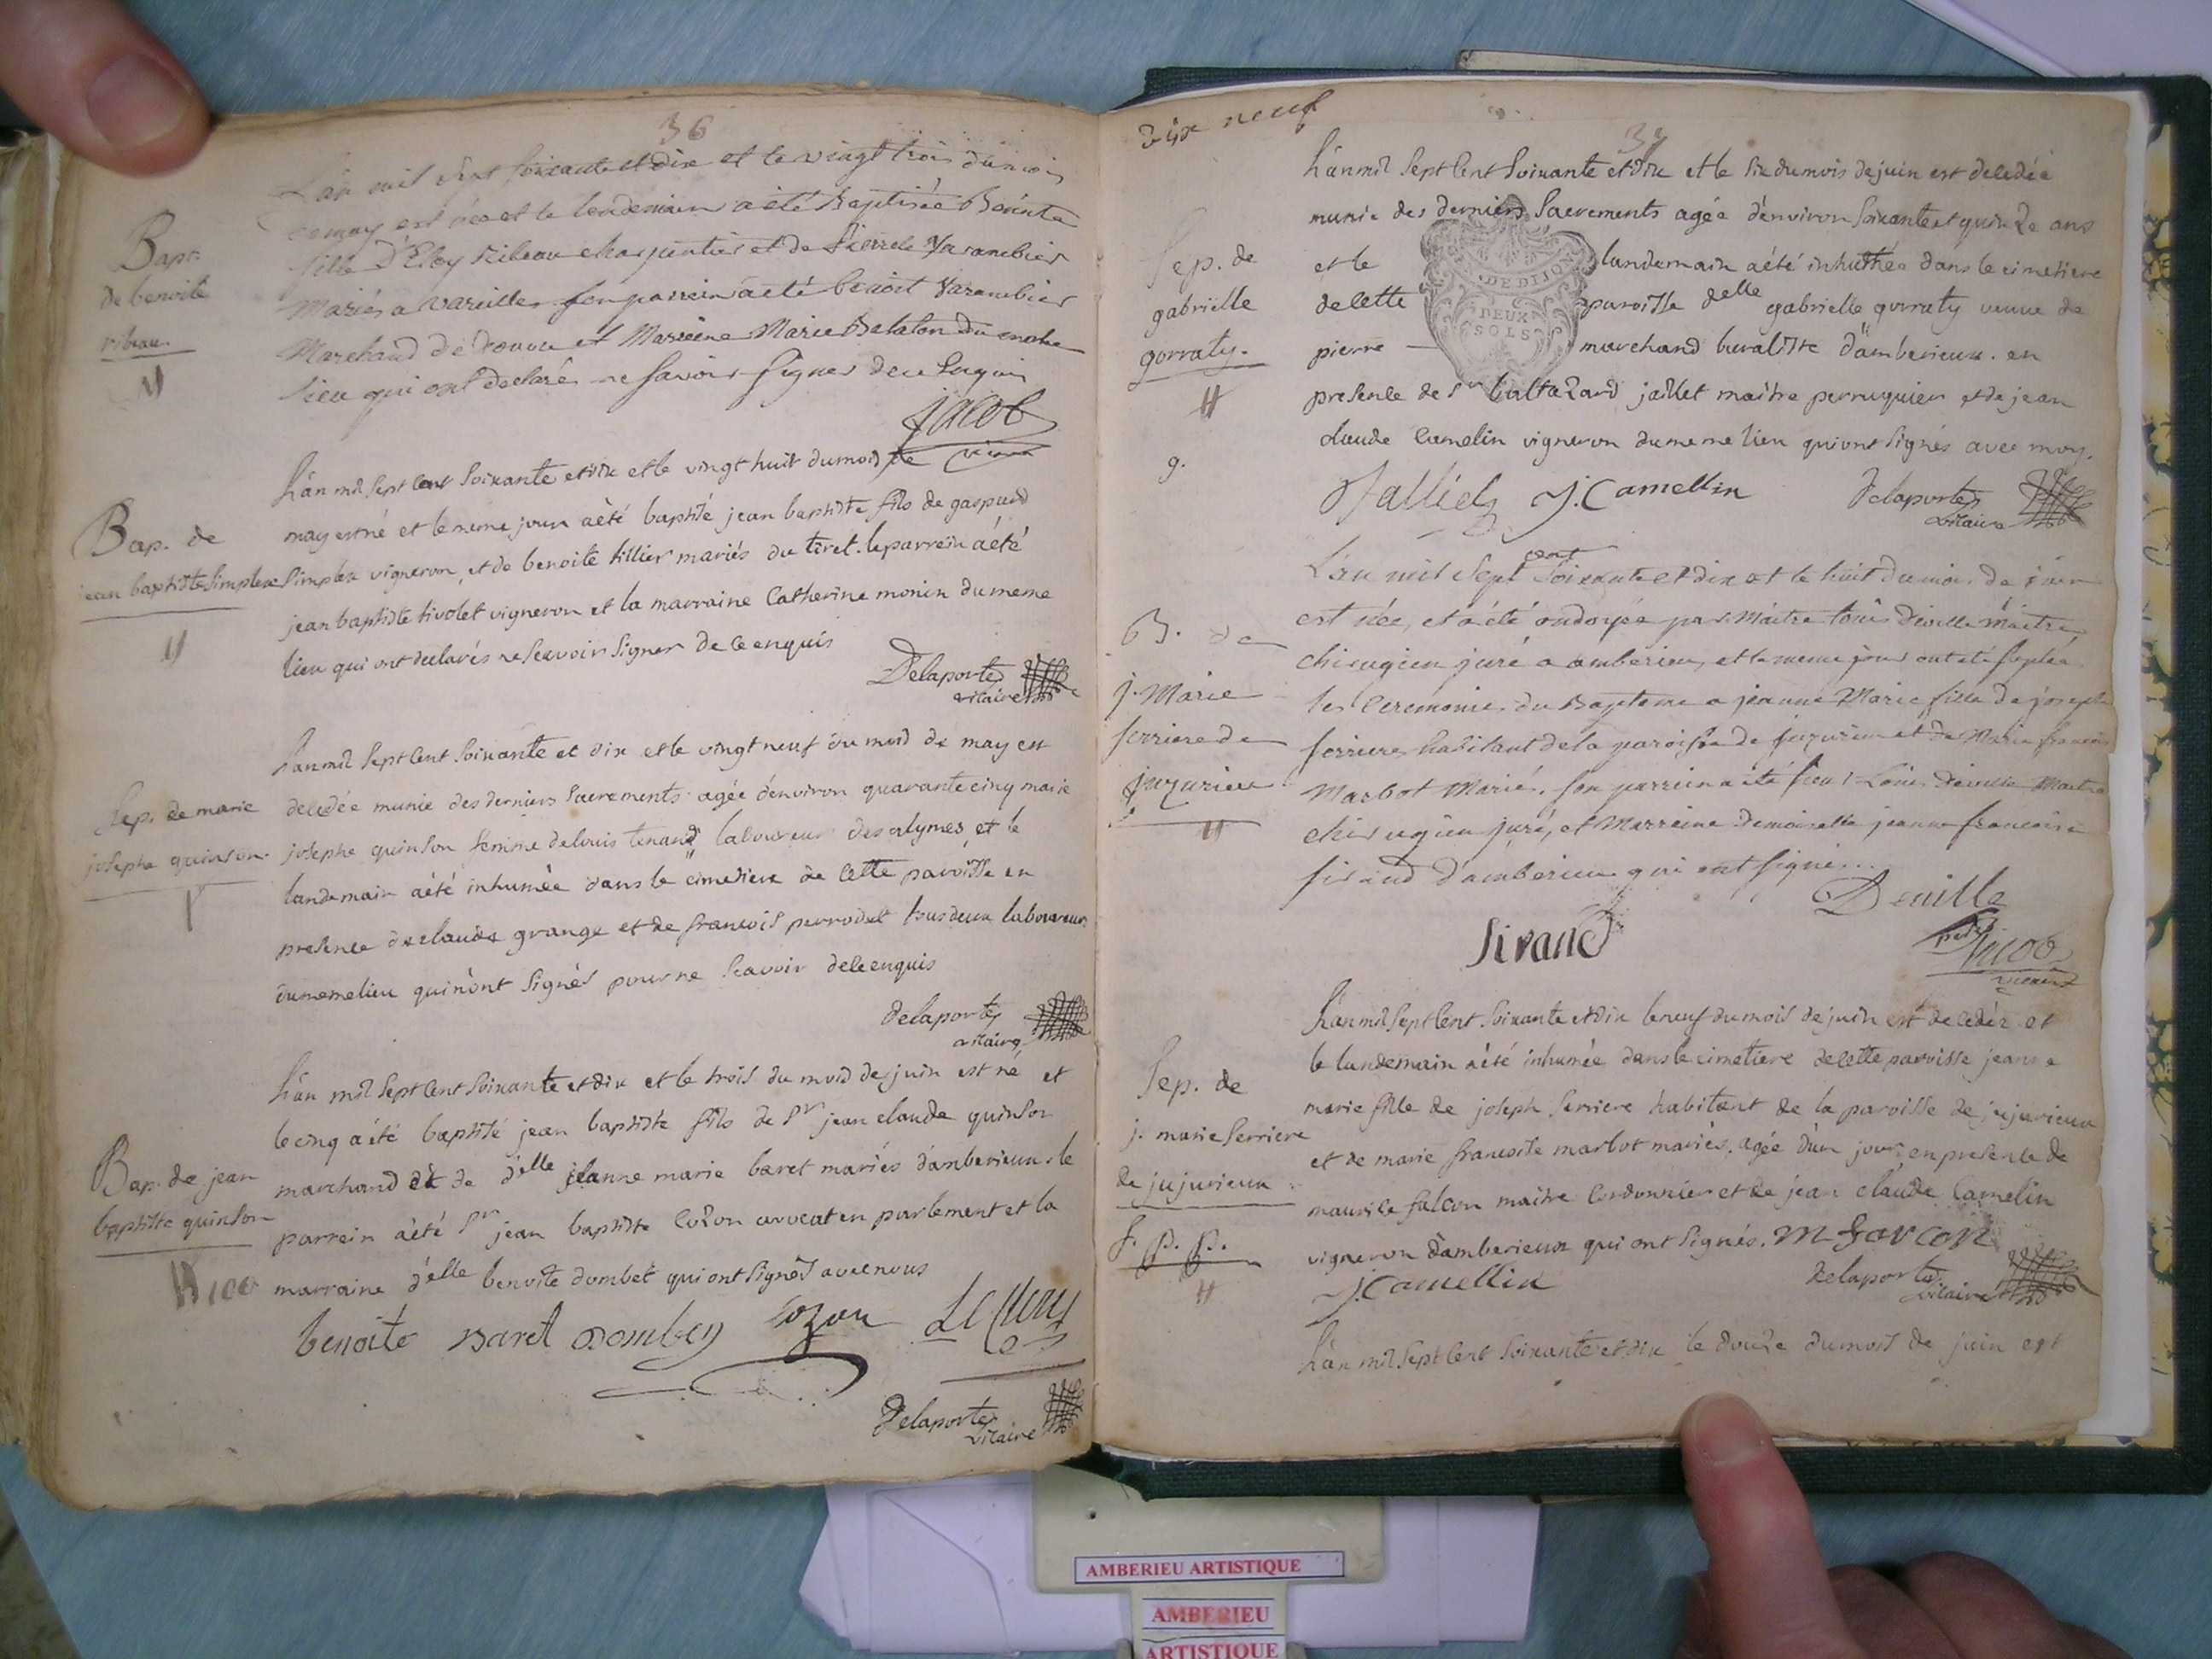 36
L'an mil sept soixante et dix et le vingt trois du mois
de may est née et le lendemain a été Baptisée Benoite
fille d'Eloy Ribeau charpentier et de Pierrete Varambier
Mariés a Vareilles son parrein a été benoit Varambier
Marchand de Douvre et Marreine Marie Belaton du meme
lieu qui ont declaré ne savoir signer de ce enquis
jacob
Bapt.
de benoite
ribeau
L'an mil sept cent soixante et dix et le vingt huit du mois de
may est né et le meme jour a été baptisé jean baptiste fils de gaspard
simplex vigneron, et de benoite tillier mariés du tiret. le parrein a été
jean baptiste tivolet vigneron et la marraine Catherine monin du meme
lieu qui ont declarés ne scavoir signer de ce enquis
Delaporte
vicaire
Bap. de
jean baptiste simplexe
L'an mil sept cent soixante et dix et le vingt neuf du mois de may est
decedée munie des derniers sacrements agée d'environ quarante cinq marie
josephe quinson femme de louis tenand laboureur des alymes, et le
landemain a été inhumée dans le cimetiere de cette paroisse en
presence de claude grange et de francois perrodet tous deux laboureurs
du meme lieu qui n'ont signés pour ne scavoir de ce enquis
delaporte
vicaire
Sep. de marie
josephe quinson.
L'an mil sept cent soixante et dix et le trois du mois de juin est né et
le cinq a été baptisé jean baptiste fils de Sr jean claude quinson
marchand et de delle jeanne marie baret mariés d'amberieux. le
parrein a été Sr jean baptiste cozon avocat en parlement et la
marraine delle benoite dombet qui ont signés avec nous
benoite Baret Dombey cozon
Delaporte
vicaire
Bap. de jean
baptiste quinson
dix neuf
37
L'an mil sept cent soixante et dix et le six du mois de juin est decedée
munie des derniers sacrements agée d'environ soixante et quinze ans
et le landemain a été inhumée dans le cimetiere
de cette paroisse delle gabrielle gorraty veuve de
pierre — marchand buraliste d'amberieux. en
presence de Sr baltazard jallet maitre perruquier et de jean
claude camelin vigneron du meme lieu qui ont signés avec moy.
J. Camellin
Delaporte
vicaire
DE DIJON
DEUX
SOLS
Sep. de
gabrielle
gorraty.
g.
L'an mil sept cent soixante et dix et le huit du mois de juin
est née, et a été ondoyée par Maitre louis Deville maitre
chirugien juré a amberieu, et le meme jour ont eté suplée
les Ceremonies du Bapteme a jeanne Marie fille de joseph
ferriere habitant de la paroisse de jujurieu et de Marie francoise
Marbot Mariés. son parrein a été sieur Louis Deville Maitre
chirugien juré, et Marreine Demoiselle jeanne francoise
sirand d'amberieu qui ont signé...
Deville
Sirand
jacob
vicaire
B. de
j. Marie
ferriere de
jujurieu
L'an mil sept cent soixante et dix le neuf du mois de juin est decedée et
le landemain a été inhumée dans le cimetiere de cette paroisse jeanne
marie fille de joseph ferriere habitant de la paroisse de jujurieux
et de marie francoise marbot mariés. agée d'un jour, en presence de
maurice falcon maitre cordonnier et de jean claude camelin
vigneron d'amberieux qui ont signés. M farcon
J. Camellin
delaporte
vicaire
Sep. de
j. marie ferriere
de jujurieux
L'an mil sept cent soixante et dix le douze du mois de juin est
AMBERIEU ARTISTIQUE
AMBERIEU
ARTISTIQUE